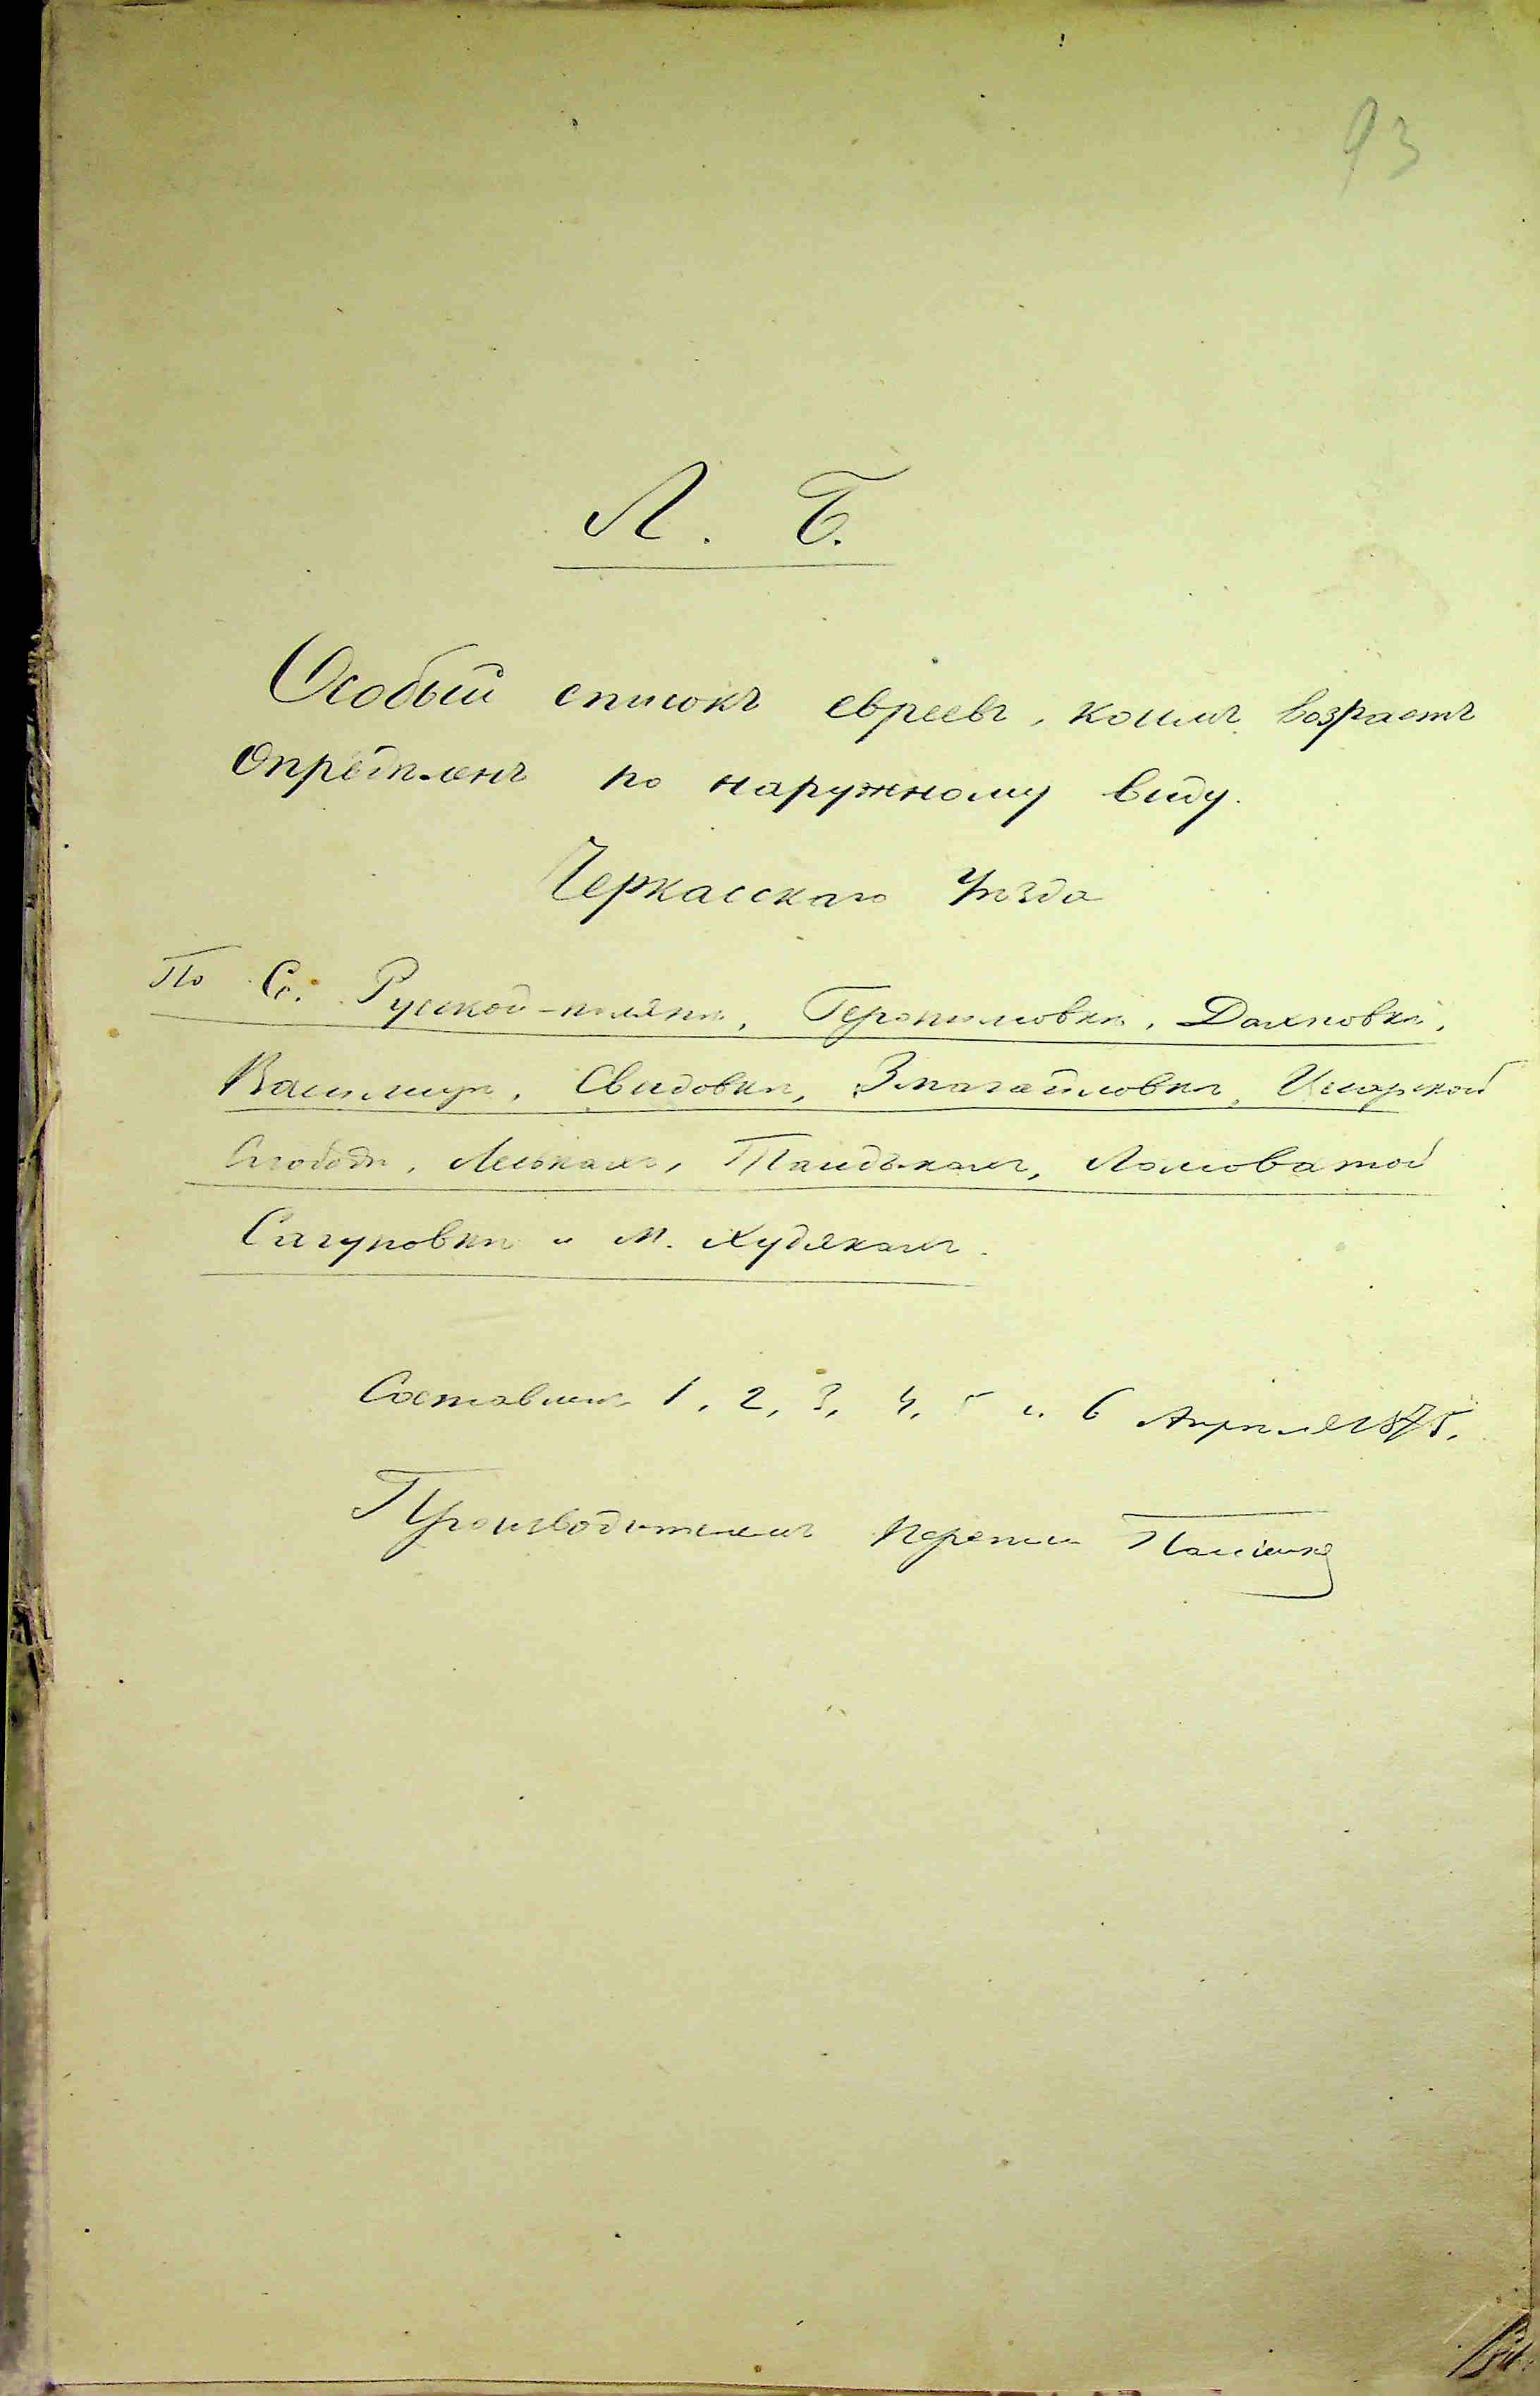 93
Л. Б.
Особый списокъ евреевъ, коимъ возрастъ
опредѣленъ по наружному виду.
Черкасскаго уѣзда
По С. Русской-полянѣ, Геронимовкѣ, Дахновкѣ,
Василицѣ, Свидовкѣ, Змагайловкѣ, Цесарской
Слободѣ, Леськахъ, Талдыкахъ, Ломоватой
Сагуновкѣ и М. Худякахъ.
Составленъ 1, 2, 3, 4, 5 и 6 Апрѣля 1875.
Производителемъ переписи